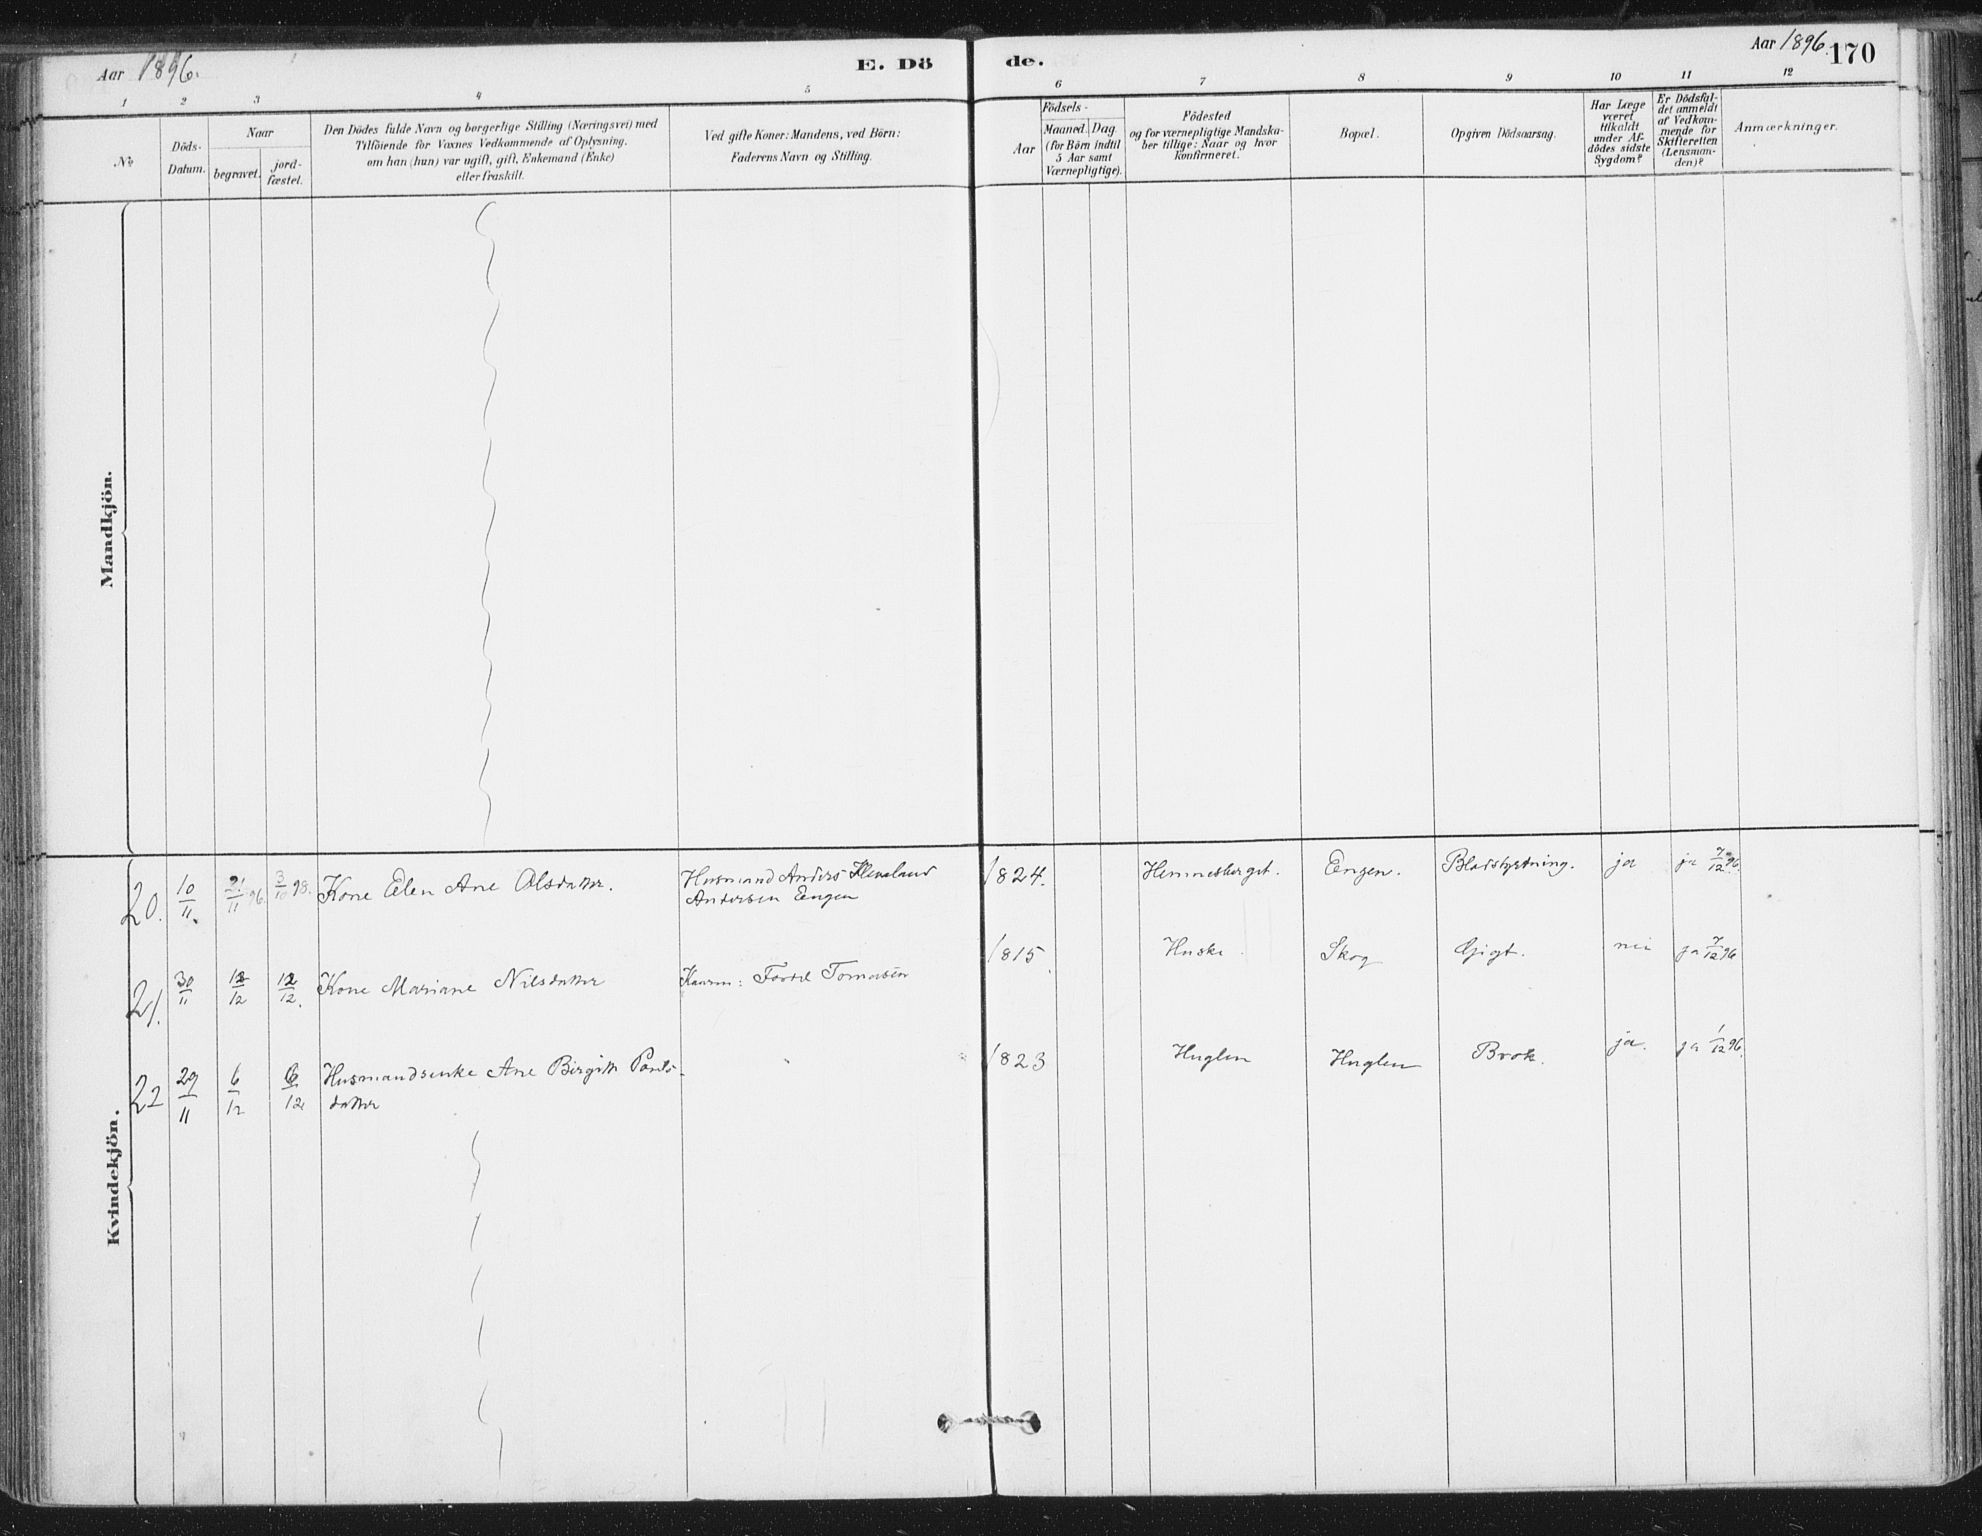 Aar 1896.
E. Dö
de.
Aar 1896. 170
1 2 3 4 5 6 7 8 9 10 11 12
No
Döds-
Datum.
Naar
begravet.
jord-
fæstet.
Den Dödes fulde Navn og borgerlige Stilling (Næringsvei) med
Tilföiende for Voxnes Vedkommende af Oplysning,
om han (hun) var ugift, gift, Enkemand (Enke)
eller fraskilt.
Ved gifte Koner: Mandens, ved Börn:
Faderens Navn og Stilling.
Födsels-
Aar
Maaned. Dag.
(for Börn indtil
5 Aar samt
Værnepligtige).
Födested
og for værnepligtige Mandska-
ber tillige: Naar og hvor
konfirmeret.
Bopæl.
Opgiven Dödsaarsag.
Har Læge
været
tilkaldt
under Af-
dödes sidste
Sygdom?
Er Dödsfal-
det anmeldt
af Vedkom-
mende for
Skifteretten
(Lensman-
den)?
Anmærkninger.
Mandkjön.
Kvindekjön.
20. 10/11 21/11 96. 3/10 98. Kone Elen Ane Olsdatter. Husmand Anders Kleveland
Andersen Engen
1824. Hemnesberget. Engen. Blodstyrtning. ja ja 7/12 96.
21. 30/11 12/12 12/12. Kone Mariane Nilsdatter Tomasen
1815. Huske. Skog Gigt. nei ja 7/12 96
22 29/11 6/12 6/12 Husmandsenke Ane Birgitte
datter
1823 Huglen Huglen Brok. ja. ja 1/12 96.